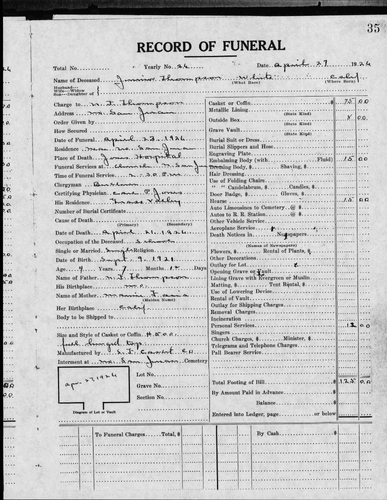 35
RECORD OF FUNERAL
Total No. Yearly No. 26 Date April 27 1926
Name of Deceased Thompson White Calif
(What Race) (Where Born)
Husband—
Wife—Widow
Son—Daughter of
Charge to N. J. Thompson
Address No. San Juan
Order Given by
How Secured
Date of Funeral April 23, 1926
Residence No. San Juan
Place of Death Jones Hospital
Funeral Services at Church N. San Juan
Time of Funeral Service 2:30 P.M
Clergyman
Certifying Physician Carl P Jones
His Residence Grass Valley
Number of Burial Certificate
Cause of Death
(Primary) (Secondary)
Date of Death April 21, 1926
Occupation of the Deceased School
Single or Married Single Religion
Date of Birth Sept. 9, 1921
Age Years 7 Months 12 Days
Name of Father N. J. Thompson
His Birthplace Mo.
Name of Mother
(Maiden Name)
Her Birthplace Calif
Body to be Shipped to
Size and Style of Casket or Coffin
full
Manufactured by S. F. Casket Co
Interment at No. San Juan Cemetery
Lot No.
Grave No.
Section No.
Apr 27, 1926
Diagram of Lot or Vault
Casket or Coffin $ 75 00
Metallic Lining
(State Kind)
Outside Box 00
(State Kind)
Grave Vault
(State Kind)
Burial Suit or Dress
Burial Slippers and Hose
Engraving Plate
Embalming Body (with Fluid) 15 00
Dressing Body, $ Shaving, $
Hair Dressing
Use of Folding Chairs
" " Candelabrum, $ Candles, $
Door Badge, $ Gloves, $
Hearse 15 00
Auto Limousines to Cemetery @ $
Autos to R. R. Station @ $
Other Vehicle Service
Aeroplane Service
Death Notices in Newspapers
(Names of Newspapers)
Flowers, $ Rental of Plants, $
Other Decorations
Outlay for Lot
Opening Grave or Vault
Lining Grave with Evergreen or Muslin
Matting, $ Tent Rental, $
Use of Lowering Device
Rental of Vault
Outlay for Shipping Charges
Removal Charges
Incineration
Personal Services 12 00
Singers
Church Charges, $ Minister, $
Telegrams and Telephone Charges
Pall Bearer Service
Total Footing of Bill $ 125 00
By Amount Paid in Advance
Balance
Entered into Ledger, page or below
To Funeral Charges Total, $ By Cash $